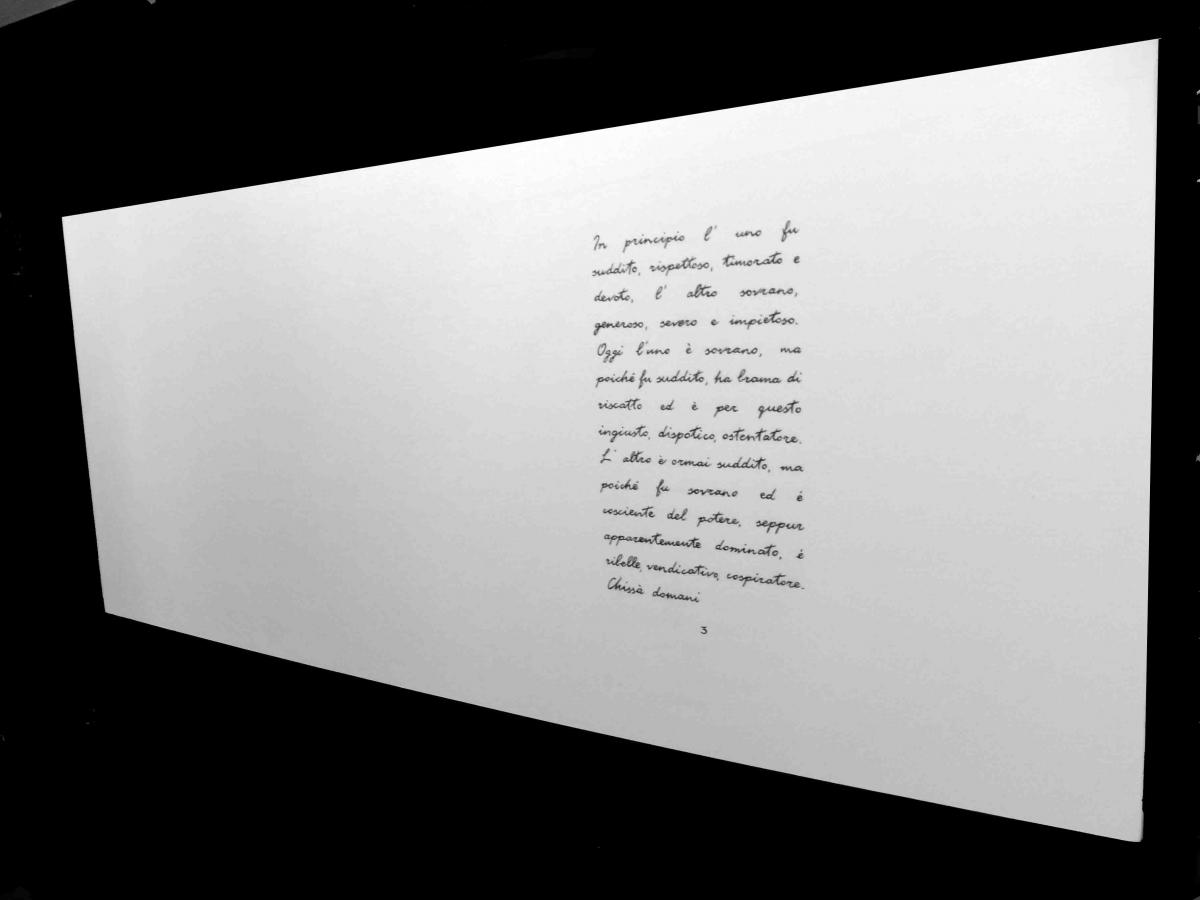 In principio l' uno fu
suddito, rispettoso, timorato e
devoto, l' altro sovrano,
generoso, severo e impietoso.
Oggi l'uno è sovrano, ma
poiché fu suddito, ha brama di
riscatto ed è per questo
ingiusto, dispotico, ostentatore.
L' altro è ormai suddito, ma
poiché fu sovrano ed è
cosciente del potere, seppur
apparentemente dominato, è
ribelle, vendicativo, cospiratore.
Chissà domani
3